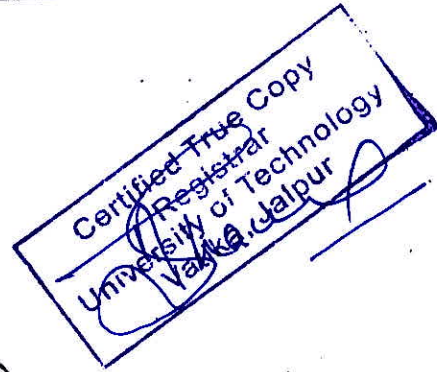 Certified True Copy
Registrar
University of Technology
Vatika, Jaipur